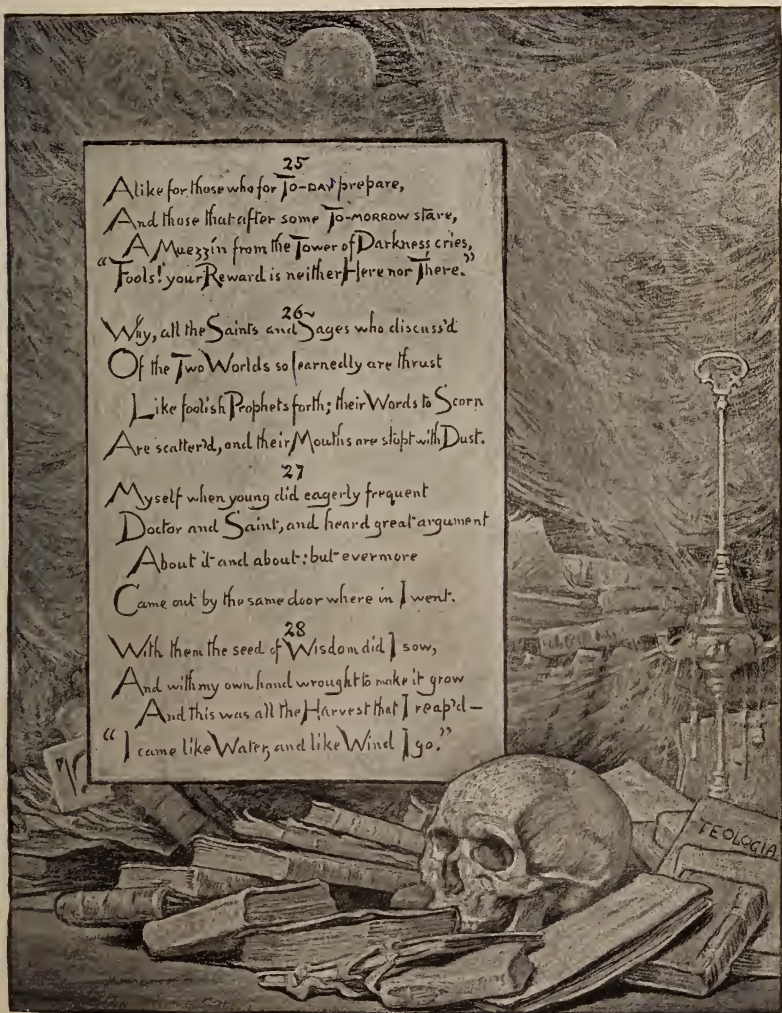 25
Alike for those who for TO-DAY prepare,
And those that after some TO-MORROW stare,
A Muezzín from the Tower of Darkness cries,
"Fools! your Reward is neither Here nor There."
26
Why, all the Saints and Sages who discuss'd
Of the Two Worlds so learnedly are thrust
Like foolish Prophets forth; their Words to Scorn
Are scatter'd, and their Mouths are stopt with Dust.
27
Myself when young did eagerly frequent
Doctor and Saint, and heard great argument
About it and about: but evermore
Came out by the same door where in I went.
28
With them the seed of Wisdom did I sow,
And with my own hand wrought to make it grow
And this was all the Harvest that I reap'd—
"I came like Water, and like Wind I go."
TEOLOGIA